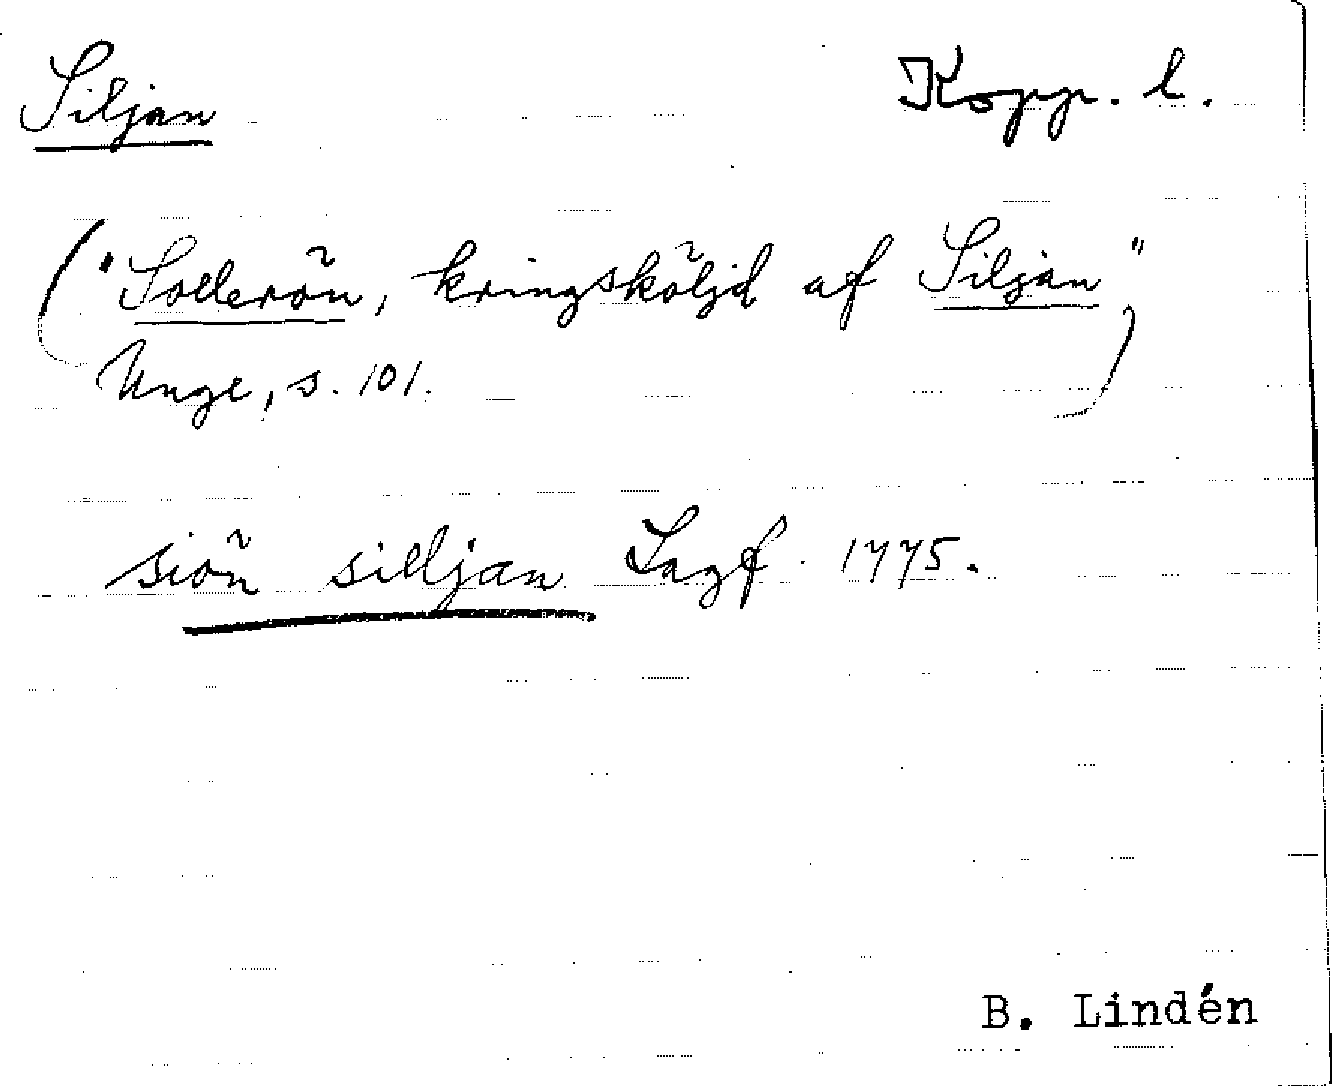 Siljan Kopp. l.
("Sollerön, kringsköljd af Siljan"
Unge, s. 101.)
siön silljan Lagf. 1775.
B. Lindén